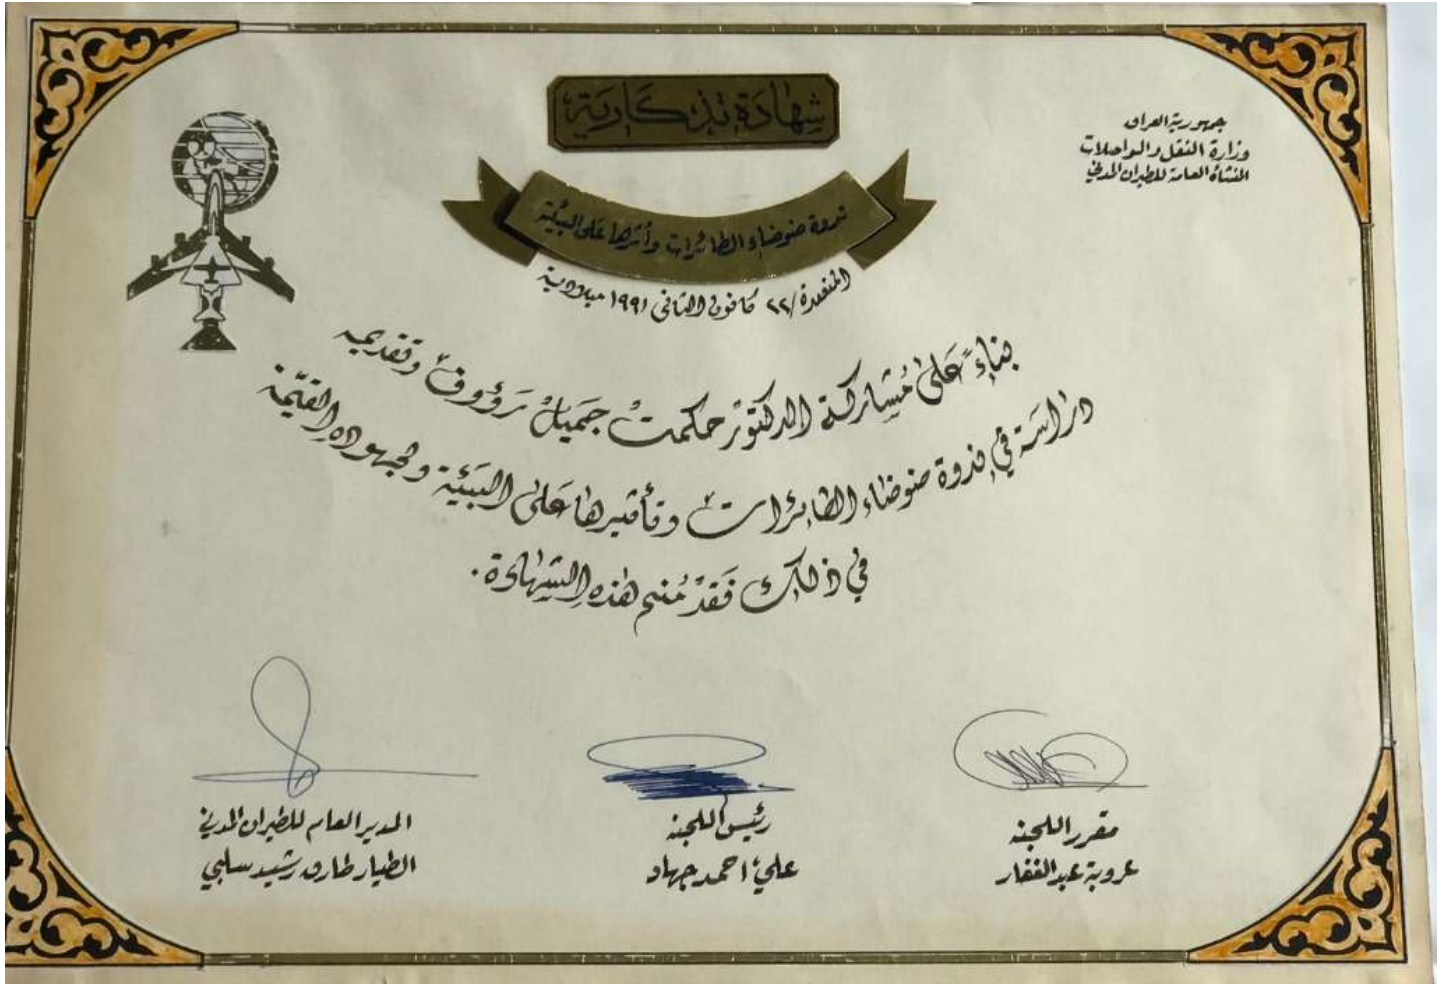 جمهورية العراق
وزارة النقل والمواصلات
المنشأة العامة للطيران المدني
شهادة تذكارية
ندوة ضوضاء الطائرات وأثرها على البيئة
المنعقدة / ٢٢ كانون الثاني ١٩٩١ ميلادية
بناءً على مُشاركة الدكتور حكمت جميل رؤوف وتقديمه
دراسة في ندوة ضوضاء الطائرات وتأثيرها على البيئة ولجهوده القيّمة
في ذلك فَقدْ مُنح هذه الشهادة .
مقرر اللجنة
عروبة عبدالغفار
رئيس اللجنة
علي احمد جهاد
المدير العام للطيران المدني
الطيار طارق رشيد سلبي